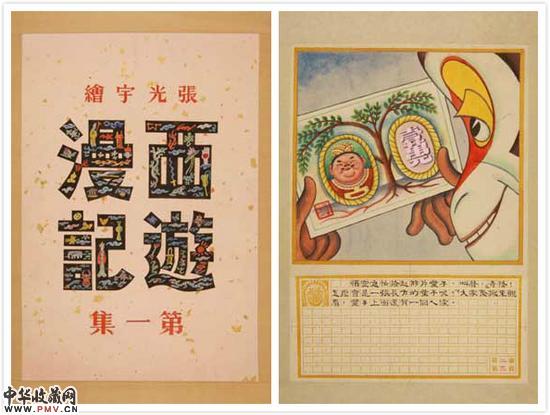 張光宇繪
西遊
漫記
第一集
悟空連忙拾起那片葉子，叫怪，奇怪！
怎麼會是一張長方的葉子呢，大家圍來觀
看，葉子上面還有一個人像。
中华收藏网
WWW.PMV.CN